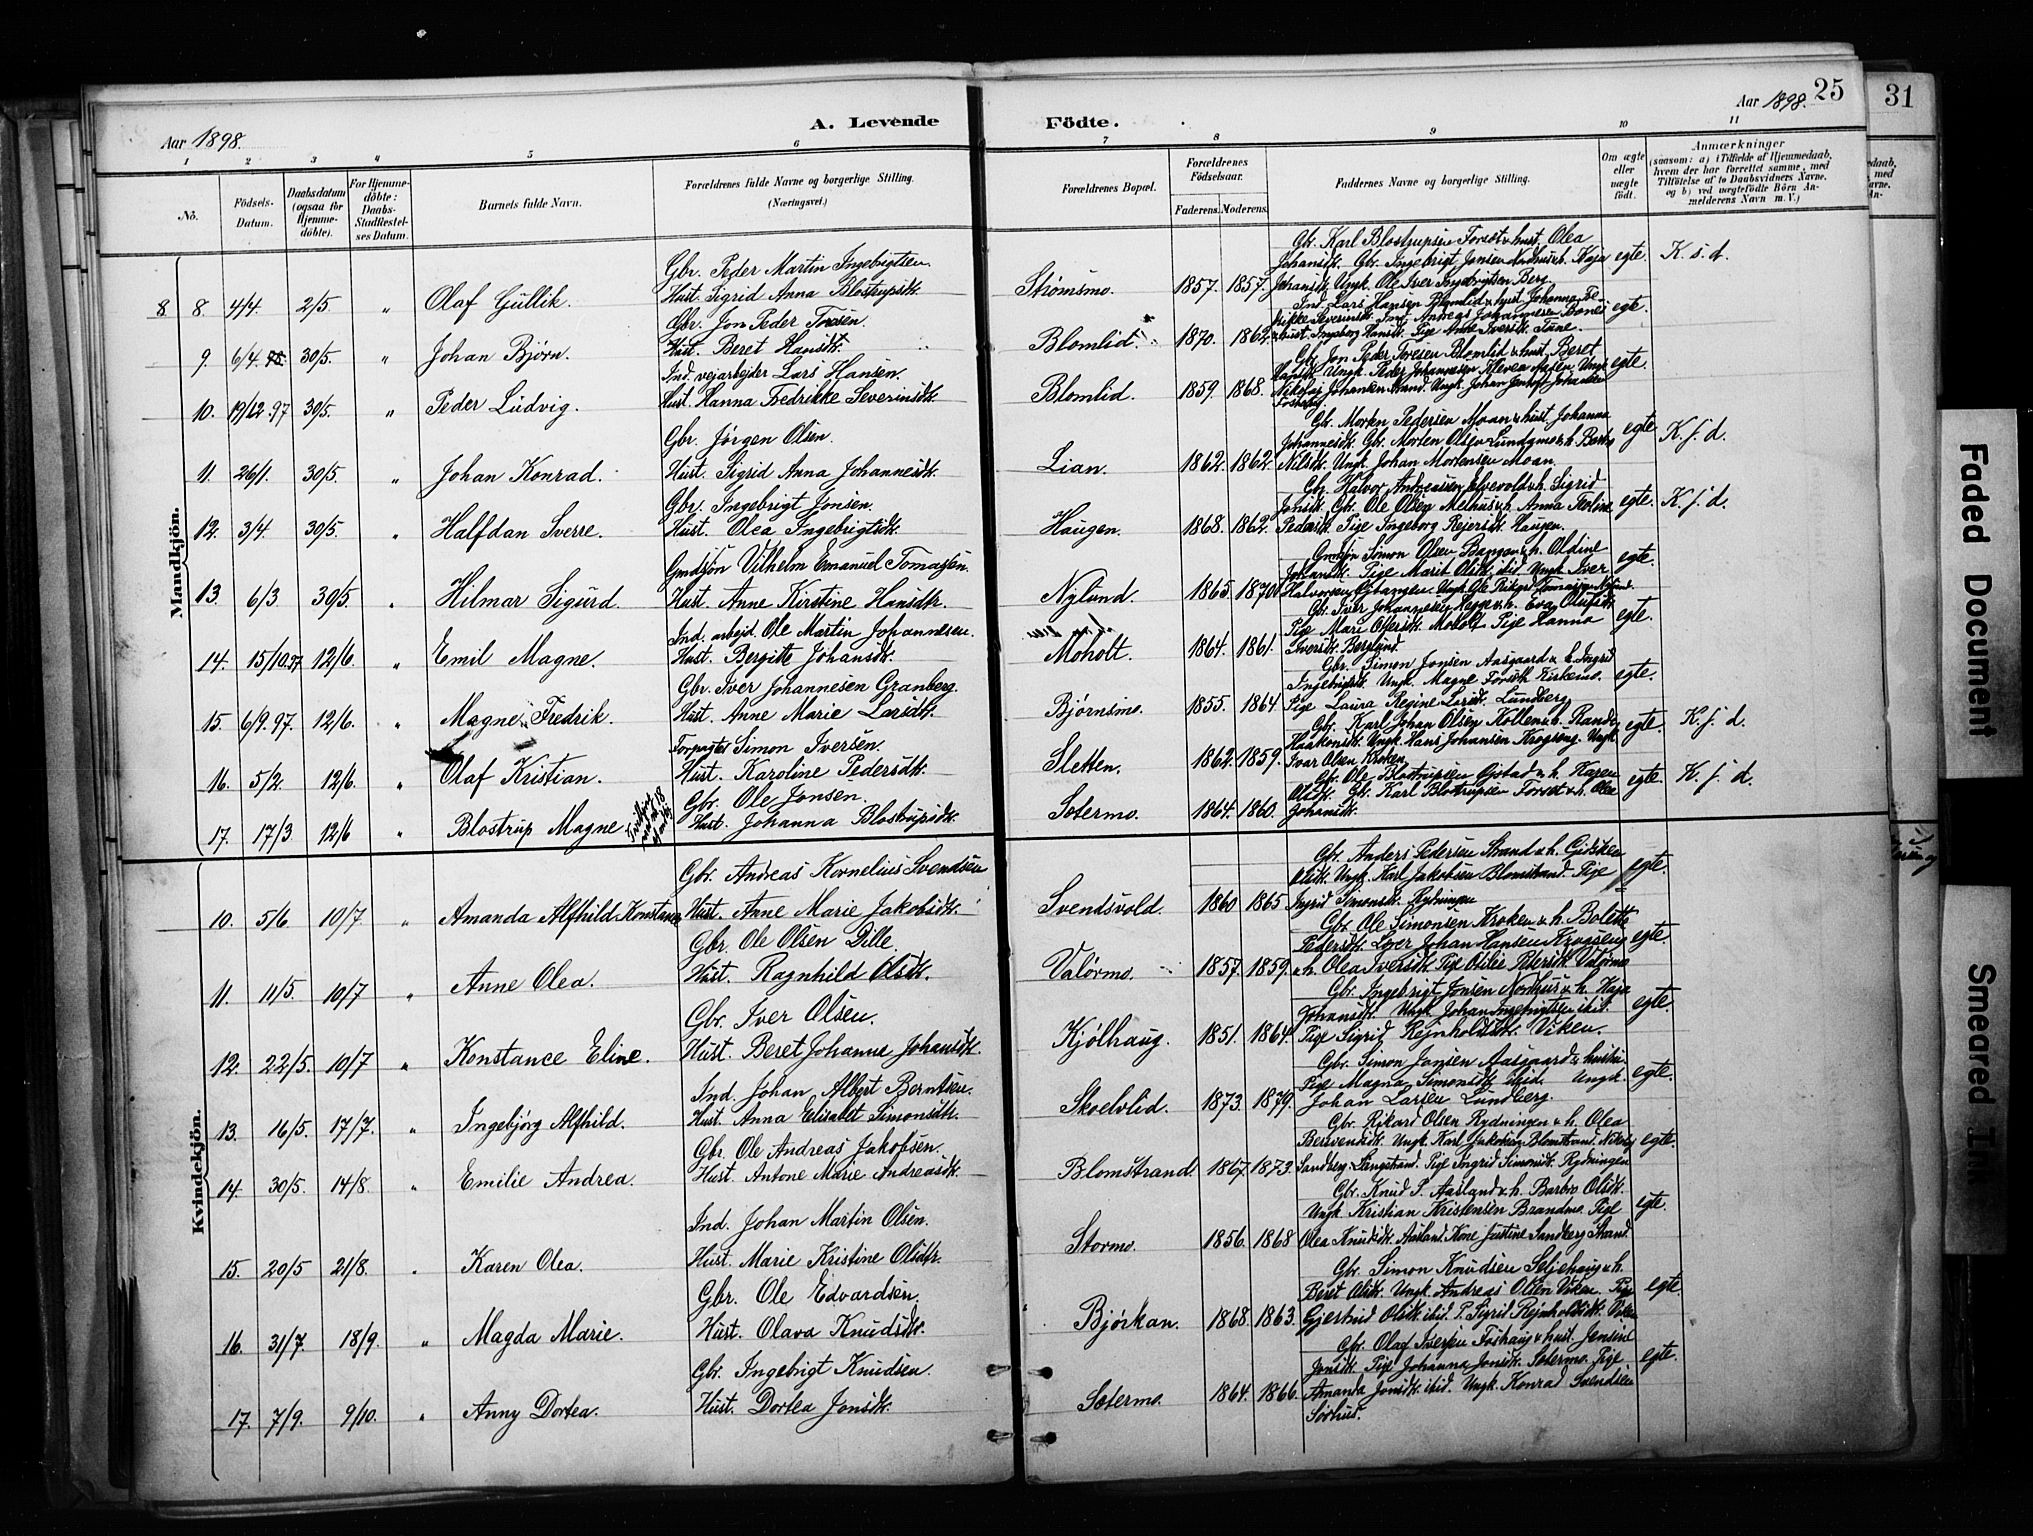 Aar 1898.
A. Levende
Födte.
Aar 1898.
25
31
1 2 3 4 5 6 7 8 9 10 11
Nö.
Födsels-
Datum.
Daabsdatum
(ogsaa for
Hjemme-
döbte).
For Hjemme-
döbte:
Daabs-
Stadfæstel-
ses Datum.
Barnets fulde Navn.
Forældrenes fulde Navne og borgerlige Stilling.
(Næringsvei.)
Forældrenes Bopæl.
Forældrenes
Födselsaar.
Faderens. Moderens.
Faddernes Navne og borgerlige Stilling.
Om ægte
eller
uægte
födt.
Anmærkninger
(saasom: a) i Tilfælde af Hjemmedaab,
hvem der har forrettet samme, med
Tilföielse af to Daabsvidners Navne,
og b) ved uægtefödte Börn An-
melderens Navn m. V.)
Mandkjön.
8 8. 4/4. 2/5. " Olaf Gullik.
Gbr. Peder Martin Ingebrigtsen.
Hust. Sigrid Anna Blostrupsdt.
Strømsmo. 1857. 1857.
Gbr. Karl Blostrupsen Forsdt & hust. Olea
Johansdt. Gbr. Ingebrigt Jonsen Nordhus & h. Kaja
Johansdt. Ungk. Ole Iver Ingebrigtsen Berg.
egte. K. s. d.
9. 6/4. 30/5. " Johan Bjørn.
Gbr. Jon Peder Toresen.
Hust. Beret Hansdt.
Blomlid. 1870. 1862.
Ind. Lars Hansen Blomlid & hust. Johanna Fre-
drikke Severinsdt. Ind. Andreas Johannesen Bones
& hust. Ingeborg Hansdt. Pige Anne Iversdt. Tune.
egte.
10. 19/12.97 30/5. " Peder Ludvig.
Ind. vejarbejder Lars Hansen.
Hust. Hanna Fredrikke Severinsdt.
Blomlid. 1859. 1868.
Gbr. Jon Peder Toresen Blomlid & hust. Beret
Hansdt. Ungk. Peder Johannesen Kleven Aasen. Ungk.
Nikolaj Johansen Strand. Ungk. Johan Jentoft Johansen
egte.
11. 26/1. 30/5. " Johan Konrad.
Gbr. Jörgen Olsen.
Hust. Sigrid Anna Johannesdt.
Lian. 1862. 1862.
Gbr. Morten Pedersen Moan & hust. Johanna
Johannesdt. Gbr. Morten Olsen Lundamo & h. Barbro
Nilsdt. Ungk. Johan Mortensen Moan.
egte. K. f. d.
12. 3/4. 30/5. " Halfdan Sverre.
Gbr. Ingebrigt Jonsen.
Hust. Olea Ingebrigtsdt.
Haugen. 1868. 1862.
Gbr. Halvor Andreassen Elvevold & h. Sigrid
Jonsdt. Gbr. Ole Olsen Melhus & h. Anna Teoline
Pedersdt. Pige Ingeborg Rejersdt. Haugen.
egte. K. f. d.
13. 6/3 30/5. " Hilmar Sigurd.
Gmdsjön Vilhelm Emanuel Tomassen.
Hust. Anne Kirstine Hansdtr.
Nylund. 1865. 1870.
Gmdsjön Simon Olsen Bangan & h. Oldine
Johansdt. Pige Marit Olsdt. ibid. Ungk. Iver
egte.
14. 15/10.97 12/6. " Emil Magne.
Ind. arbejd. Ole Martin Johannesen.
Hust. Bergitte Johansdt.
Moholt. 1864. 1861.
Gbr. Iver Johannesen Hegge & h. Eva Olufsdt.
Pige Mari Olsdt. Moholt. Pige Hanna
Iversdt. Berglund.
egte.
15. 6/9.97. 12/6. " Magne Fredrik.
Gbr. Iver Johannesen Granberg.
Hust. Anne Marie Larsdtr.
Bjørnsmo. 1855. 1864
Gbr. Simon Jonsen Aasgaard & h. Ingrid
Ingebrigtsdt. Ungk. Magne Forseth Kirkemo.
Pige Laura Regine Larsdt. Lundberg.
egte.
16. 5/2. 12/6. " Olaf Kristian.
Forpagter Simon Iversen.
Hust. Karoline Pedersdt.
Sletten. 1862. 1859.
Gbr. Karl Johan Olsen Kollen & h. Randi
Haakonsdt. Ungk. Hans Johansen Krogseng. Ungk.
Ivar Olsen Kroken.
egte. K. f. d.
17. 17/3 12/6 " Blostrup Magne
Gbr. Ole Jonsen.
Hust. Johanna Blostrupsdt.
Sotermo. 1864. 1860.
Gbr. Ole Blostrupsen Opstad & h. Karen
Olsdt. Gbr. Karl Blostrupsen Forsdt & h. Olea
Johansdt.
egte. K. f. d.
Kvindekjön.
10. 5/6 10/7. " Amanda Alfhild Konstance
Gbr. Andreas Kornelius Svendsen
Hust. Anne Marie Jakobsdt.
Svendsvold. 1860 1865
Gbr. Anders Pedersen Strand & h. Gidsken
Olsdt. Ungk. Karl Jakobsen Blomstrand. Pige
Ingrid Simonsdt. Rydningen
egte.
11. 11/5. 10/7 " Anne Olea.
Gbr. Ole Olsen Dille.
Hust. Ragnhild Olsdt.
Valörmo. 1857. 1859.
Gbr. Ole Simonsen Kroken & h. Bolette
Pedersdt. Lver Johan Hansen Krogseng
& h. Olea Iversdt. Pige Otilie Pedersdt. Valörmo
egte.
12. 22/5. 10/7 " Konstance Eline.
Gbr. Iver Olsen.
Hust. Beret Johanna Johansdt.
Kjølhaug. 1851. 1864.
Gbr. Ingebrigt Jonsen Nordhus & h. Kaja
Johansdt. Ungk. Johan Ingebrigtsen ibid.
Pige Sigrid Rejnholdtsdt. Viken.
egte.
13. 16/5. 17/7. " Ingebjörg Alfhild.
Ind. Johan Albert Berntsen.
Hust. Anna Elisabet Simonsdtr.
Skoelvlid. 1873. 1879.
Gbr. Simon Jonsen Aasgaard & hustru.
Pige Magna Simonsdt. ibid. Ungk.
Johan Larsen Lundberg.
egte.
14. 30/5. 14/8. " Emilie Andrea.
Gbr. Ole Andreas Jakobsen.
Hust. Antone Marie Andreasdt.
Blomstrand. 1867. 1873.
Gbr. Rikard Olsen Rydningen & h. Olea
Berdvensdt. Ungk. Karl Jakobsen Blomstrand. Nikolaj
Sandberg Langstrand. Pige Ingrid Simonsdt. Rydningen
egte.
15. 20/5 21/8. " Karen Olea.
Ind. Johan Martin Olsen.
Hust. Marie Kristine Olsdtr.
Stormo. 1856. 1868
Gbr. Knud P. Aasland & h. Barbro Olsdt.
Ungk. Kristian Kristensen Brandmo. Pige
Olea Knudsdt. Aasland. Kone Justine Sandberg Strand.
egte.
16. 31/7. 18/9. " Magda Marie.
Gbr. Ole Edvardsen.
Hust. Olava Knudsdt.
Bjørkan. 1868. 1863.
Gbr. Simon Knudsen Seljehaug & h.
Beret Olsdt. Ungk. Andreas Olsen Viken. Pige
Gjertrud Olsdt. ibid. P. Sigrid Rejnholdtsdt. Viken
egte.
17. 7/9. 9/10. " Anny Dortea.
Gbr. Ingebrigt Knudsen.
Hust. Dortea Jonsdt.
Sotermo. 1864. 1866.
Gbr. Olaf Iversen Foshaug & hust. Jensine
Jonsdt. Pige Johanna Jonsdt. Sotermo. Pige
Amanda Jonsdt. ibid. Ungk. Konrad Svendsen
Sörhus.
egte.
Faded Document
Smeared Ink